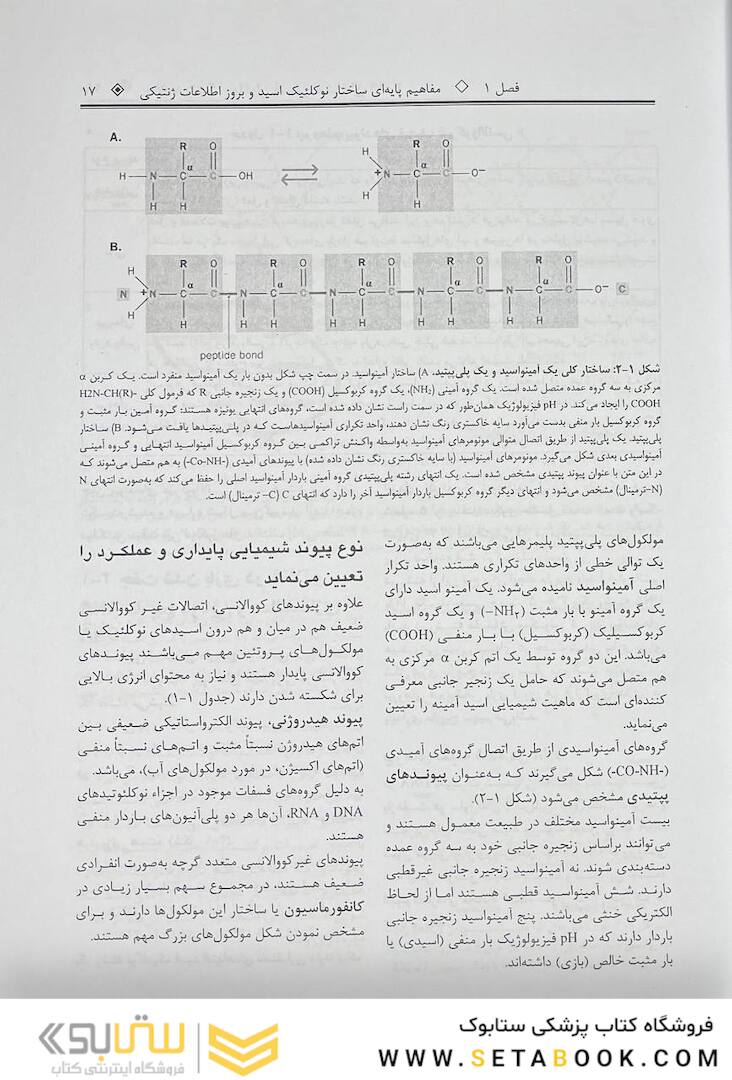 فصل ۱ ◇ مفاهیم پایه‌ای ساختار نوکلئیک اسید و بروز اطلاعات ژنتیکی ◈ ۱۷
A.
R O R O
H
H N C α C OH +N C α C O−
H H H H
B.
H R O R O R O R O R O
N +N C α C N C α C N C α C N C α C N C α C O− C
H H H H H H H H H H
peptide bond
شکل ۱-۲: ساختار کلی یک آمینواسید و یک پلی‌پپتید. A) ساختار آمینواسید. در سمت چپ شکل بدون بار یک آمینواسید منفرد است. یک کربن α
مرکزی به سه گروه عمده متصل شده است. یک گروه آمینی (NH₂)، یک گروه کربوکسیل (COOH) و یک زنجیره جانبی R که فرمول کلی H2N-CH(R)-
COOH را ایجاد می‌کند. در pH فیزیولوژیک همان‌طور که در سمت راست نشان داده شده است، گروه‌های انتهایی یونیزه هستند: گروه آمین بار مثبت و
گروه کربوکسیل بار منفی بدست می‌آورد سایه خاکستری رنگ نشان دهند، واحد تکراری آمینواسیدهاست که در پلی‌پپتیدها یافت می‌شود. B) ساختار
پلی‌پپتید. یک پلی‌پپتید از طریق اتصال متوالی مونومرهای آمینواسید به‌واسطه واکنش تراکمی بین گروه کربوکسیل آمینواسید انتهایی و گروه آمینی
آمینواسیدی بعدی شکل می‌گیرد. مونومرهای آمینواسید (با سایه خاکستری رنگ نشان داده شده) با پیوندهای آمیدی (-Co-NH-) به هم متصل می‌شوند که
در این متن با عنوان پیوند پپتیدی مشخص شده است. یک انتهای رشته پلی‌پپتیدی گروه آمینی باردار آمینواسید اصلی را حفظ می‌کند که به‌صورت انتهای N
(N-ترمینال) مشخص می‌شود و انتهای دیگر گروه کربوکسیل باردار آمینواسید آخر را دارد که انتهای C (C- ترمینال) است.
مولکول‌های پلی‌پپتید پلیمرهایی می‌باشند که به‌صورت
یک توالی خطی از واحدهای تکراری هستند. واحد تکرار
اصلی آمینواسید نامیده می‌شود. یک آمینو اسید دارای
یک گروه آمینو با بار مثبت (NH₂–) و یک گروه اسید
کربوکسیلیک (کربوکسیل) با بار منفی (COOH)
می‌باشد. این دو گروه توسط یک اتم کربن α مرکزی به
هم متصل می‌شوند که حامل یک زنجیر جانبی معرفی
کننده‌ای است که ماهیت شیمیایی اسید آمینه را تعیین
می‌نماید.
گروه‌های آمینواسیدی از طریق اتصال گروه‌های آمیدی
(-CO-NH-) شکل می‌گیرند که به‌عنوان پیوندهای
پپتیدی مشخص می‌شود (شکل ۱-۲).
بیست آمینواسید مختلف در طبیعت معمول هستند و
می‌توانند براساس زنجیره جانبی خود به سه گروه عمده
دسته‌بندی شوند. نه آمینواسید زنجیره جانبی غیرقطبی
دارند. شش آمینواسید قطبی هستند اما از لحاظ
الکتریکی خنثی می‌باشند. پنج آمینواسید زنجیره جانبی
باردار دارند که در pH فیزیولوژیک بار منفی (اسیدی) یا
بار مثبت خالص (بازی) داشته‌اند.
نوع پیوند شیمیایی پایداری و عملکرد را
تعیین می‌نماید
علاوه بر پیوندهای کووالانسی، اتصالات غیر کووالانسی
ضعیف هم در میان و هم درون اسیدهای نوکلئیک یا
مولکول‌های پروتئین مهم می‌باشند پیوندهای
کووالانسی پایدار هستند و نیاز به محتوای انرژی بالایی
برای شکسته شدن دارند (جدول ۱-۱).
پیوند هیدروژنی، پیوند الکترواستاتیکی ضعیفی بین
اتم‌های هیدروژن نسبتاً مثبت و اتم‌های نسبتاً منفی
(اتم‌های اکسیژن، در مورد مولکول‌های آب)، می‌باشد.
به دلیل گروه‌های فسفات موجود در اجزاء نوکلئوتیدهای
DNA و RNA، آن‌ها هر دو پلی‌آنیون‌های باردار منفی
هستند.
پیوندهای غیرکووالانسی متعدد گرچه به‌صورت انفرادی
ضعیف هستند، در مجموع سهم بسیار زیادی در
کانفورماسیون یا ساختار این مولکول‌ها دارند و برای
مشخص نمودن شکل مولکول‌های بزرگ مهم هستند.
فروشگاه کتاب پزشکی ستابوک
WWW.SETABOOK.COM
ستابوک
فروشگاه اینترنتی کتاب